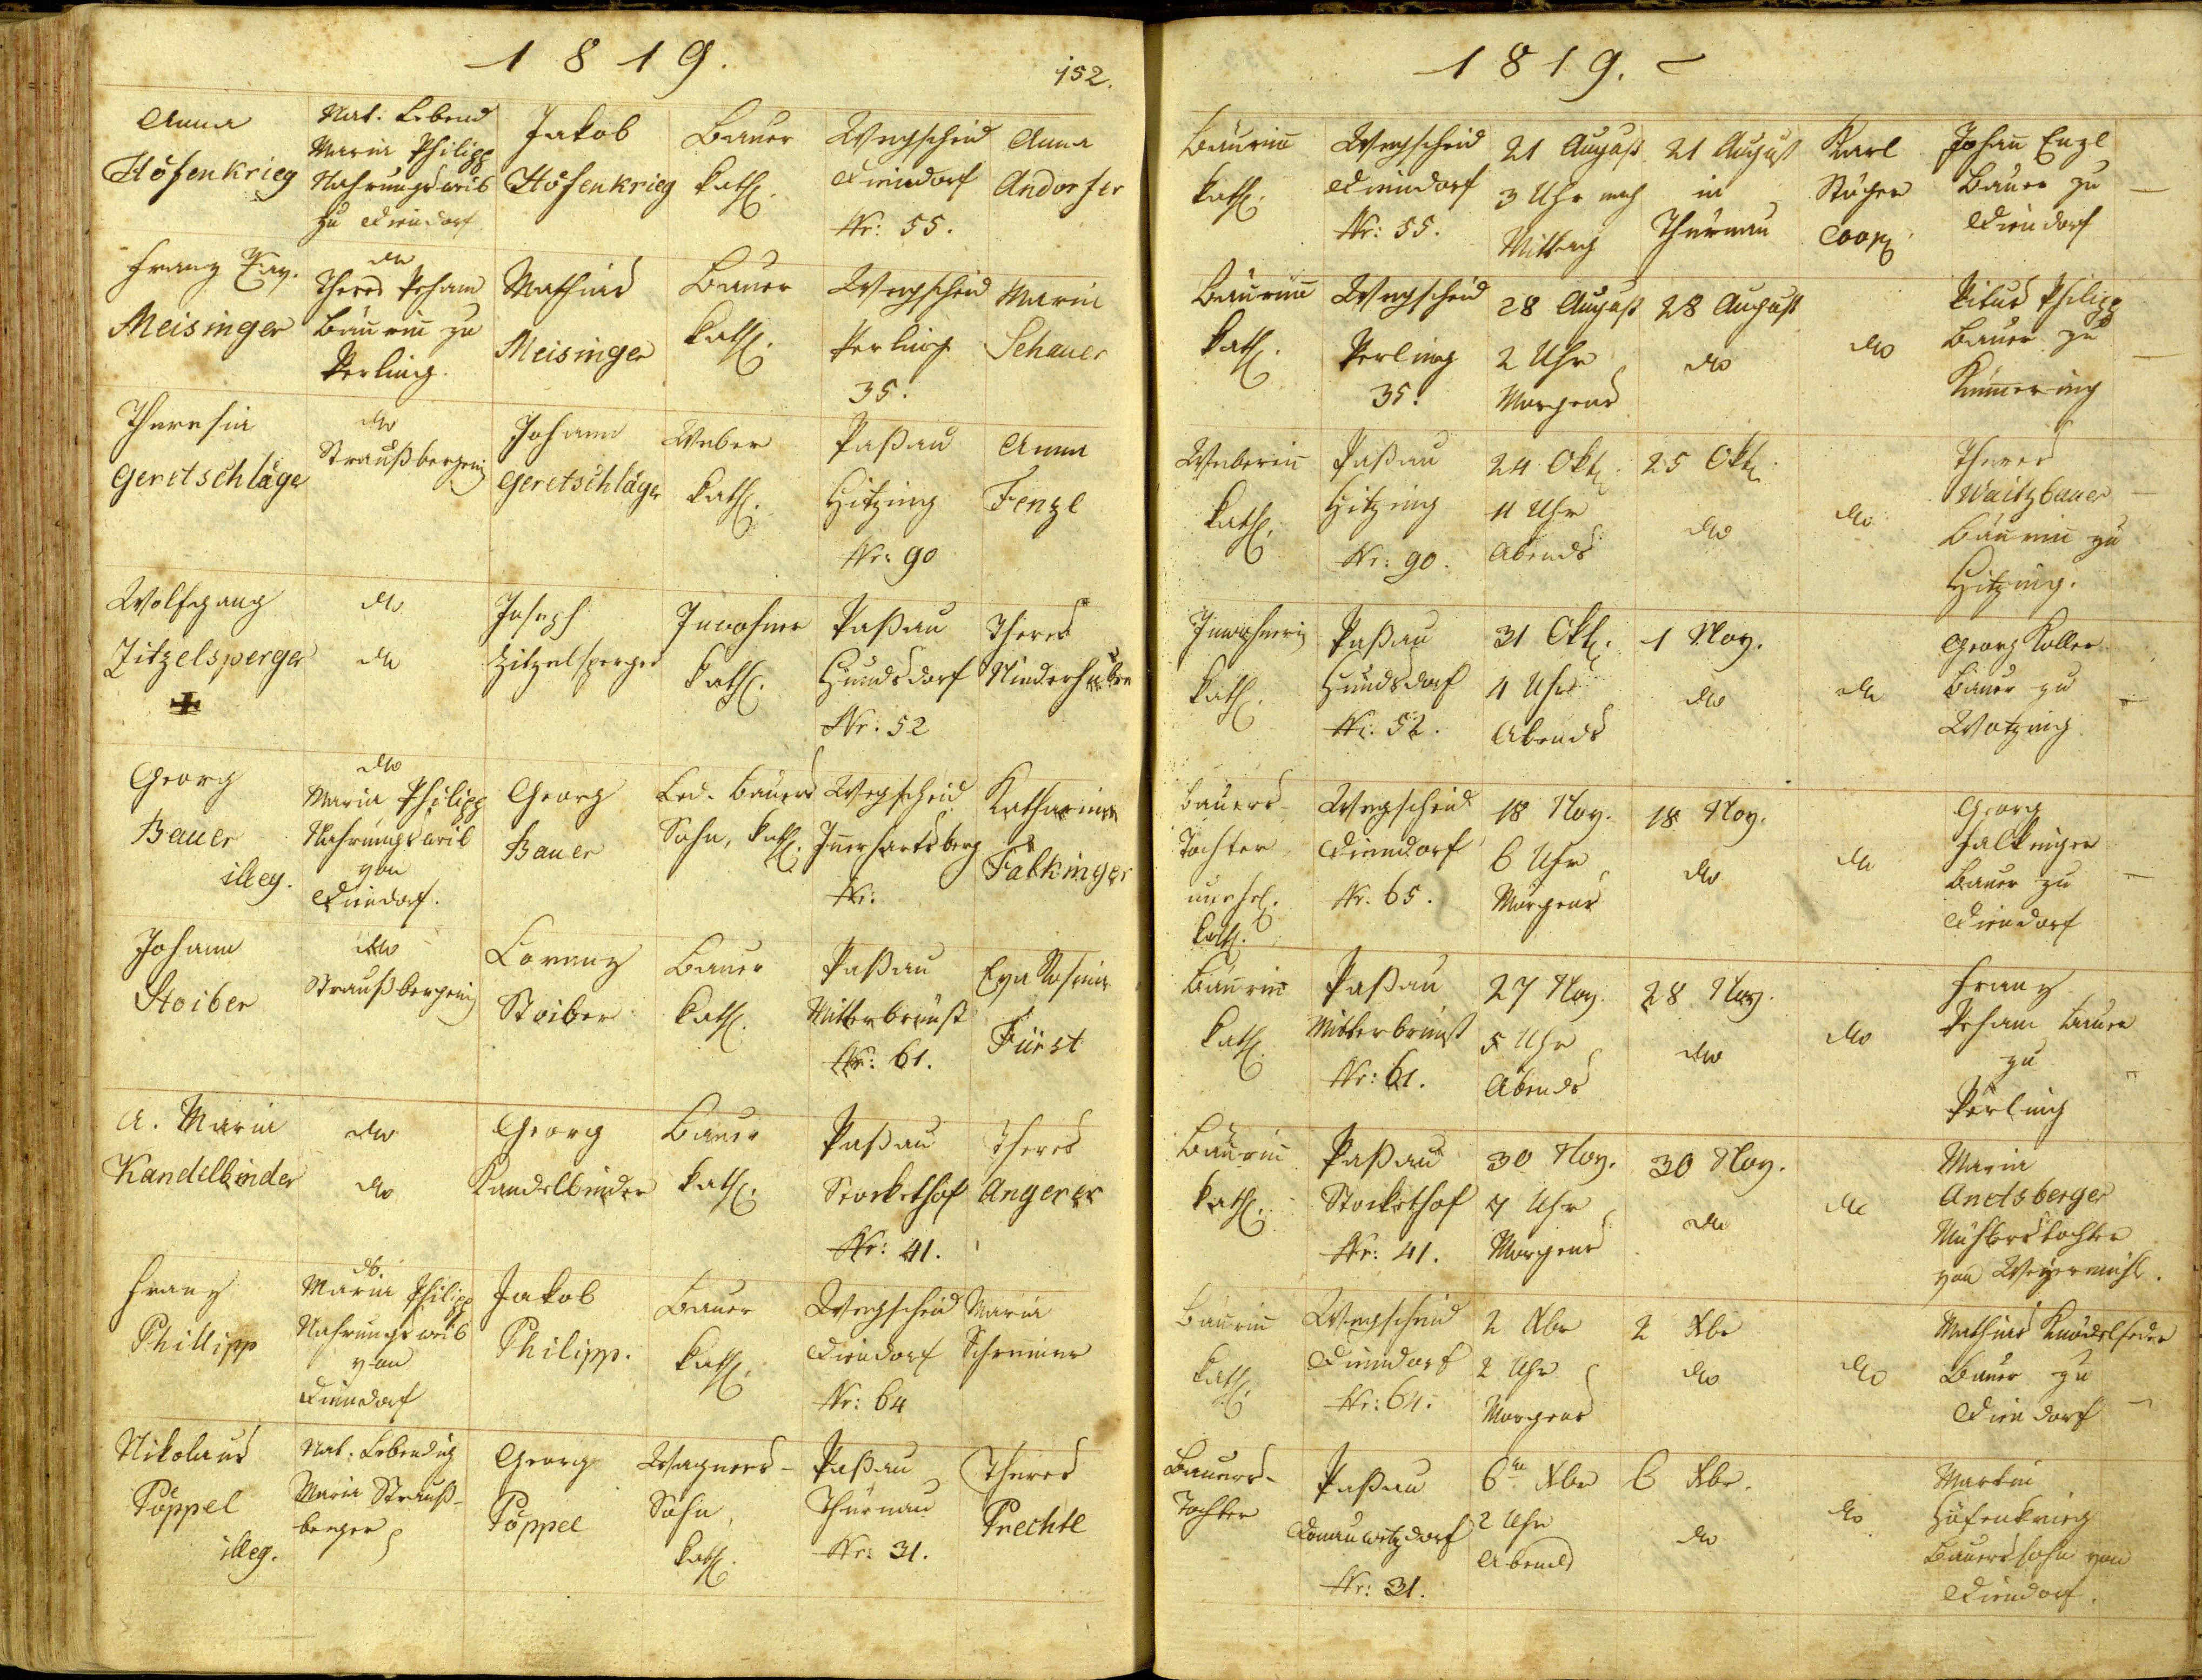 1819.
152.
Anna
Höfenkrieg
Nat: Lebend
Maria Philipp
Nahrungsweib
zu Diendorf
Jakob
Höfenkrieg
Bauer
kath.
Wegscheid
Diendorf
Nr: 55.
Anna
Andorfer
Franz Xav.
Meisinger
do
Theres Peham
Bäurin zu
Perling.
Mathias
Meisinger
Bauer
kath.
Wegscheid
Perling
35.
Maria
Schauer
Theresia
Geretschläger
do
Straußbergerin
Johann
Geretschläger
Weber
kath.
Paßau
Hitzing
Nr: 90
Anna
Fenzl
Wolfgang
Zitzelsperger
do
do
Joseph
Zitzelsperger
Inwohner
kath.
Paßau
Hundsdorf
Nr: 52
Theres
Niederhuber
Georg
Bauer
illeg.
do
Maria Philipp
Nahrungsweib
von
Diendorf.
Georg
Bauer
Led. Bauers
Sohn, kath.
Wegscheid
Nr:
Katharina
Falkinger
Johann
Stoiber
do
Straußbergerin
Lorenz
Stoiber
Bauer
kath.
Paßau
Mitterbrünst
Nr: 61.
Eva Rosina
Fürst
A. Maria
Kandelbinder
do
do
Georg
Kandelbinder
Bauer
kath.
Paßau
Stocksthof
Nr: 41.
Theres
Angerer
Franz
Phillipp
do
Maria Philipp
Nahrungsweib
von
Diendorf
Jakob
Philipp.
Bauer
kath.
Wegscheid
Diendorf
Nr: 64
Maria
Schreiner
Nikolaus
Pöppel
illeg.
Nat: Lebendig
Maria Strauß-
berger
Georg
Pöppel
Wagners-
Sohn,
kath.
Paßau
Thurnau
Nr: 31.
Theres
Prechtl
1819.
Bäurin
kath.
Wegscheid
Diendorf
Nr: 55.
21 August
3 Uhr nach
Mittag
21 August
in
Thurnau
Karl
Stöger
Coop.
Johan Enzl
Bauer zu
Diendorf
Bäurin
kath.
Wegscheid
Perling
35.
28 August
2 Uhr
Morgens
28 August
do
do
Philipp
Bauer zu
Kümering
Weberin
kath.
Paßau
Hitzing
Nr: 90.
24 Okt.
11 Uhr
Abends
25 Okt.
do
do
Theres
Waitzbauer
Bäurin zu
Hitzing.
Inwohnerin
kath.
Paßau
Hundsdorf
Nr: 52.
31 Okt.
4 Uhr
Abends
1 Nov.
do
do
Georg Koller
Bauer zu
Wotzing
Bauers-
Tochter
unehel.
kath.
Wegscheid
Diendorf
Nr. 65.
18 Nov.
6 Uhr
Morgens
18 Nov.
do
do
Georg
Falkinger
Bauer zu
Diendorf
Bäurin
kath.
Paßau
Mitterbrünst
Nr: 61.
27 Nov.
5 Uhr
Abends
28 Nov.
do
do
Franz
Peham Bauer
zu
Perling
Bäurin
kath.
Paßau
Stocksthof
Nr: 41.
30 Nov.
7 Uhr
Morgens
30 Nov.
do
do
Maria
Anetsberger
Müllerstochter
von Weyermühl.
Bäurin
kath.
Wegscheid
Diendorf
Nr: 64.
2 Xbr
2 Uhr
Morgens
2 Xbr
do
do
Mathias Knödelseder
Bauer zu
Diendorf
Bauers-
Tochter
Paßau
Donauwetzdorf
Nr: 31.
6 Xbr
2 Uhr
Abends
6 Xbr.
do
do
Martin
Höfenkrieg
Bauerssohn von
Diendorf.